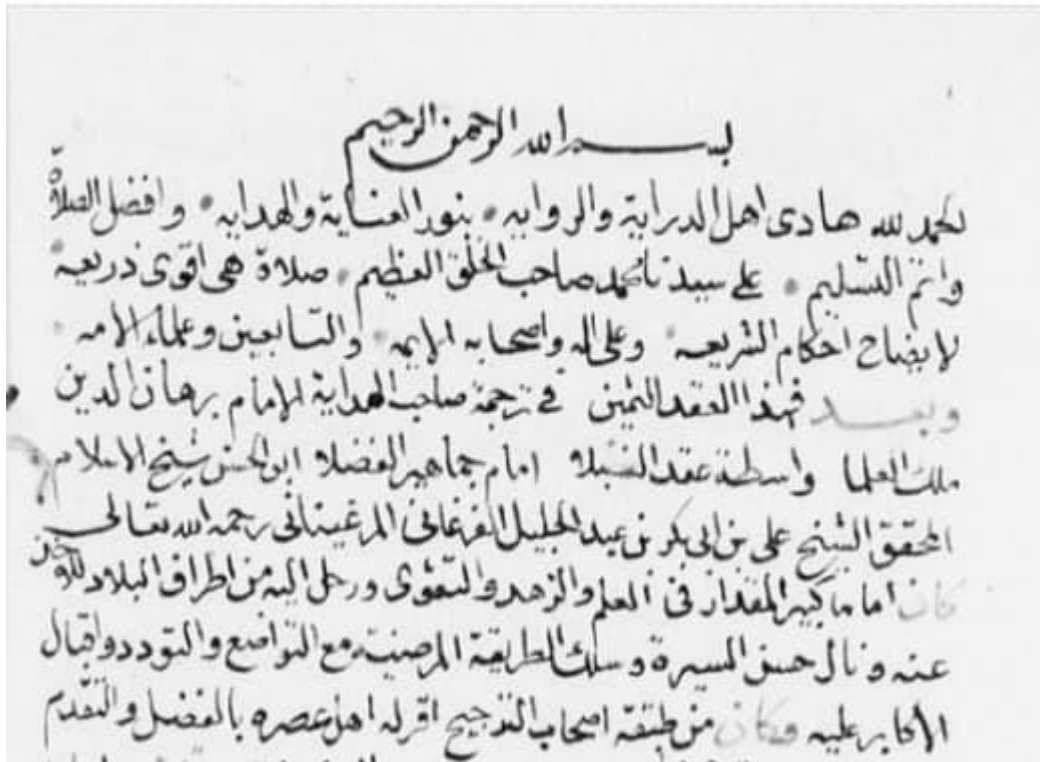 بسم الله الرحمن الرحيم
الحمد لله هادى اهل الدراية والروايه • بنور العناية والهدايه • وافضل الصلاة
واتم التسليم • على سيدنا محمد صاحب الخلق العظيم • صلاة هى اقوى ذريعة
لايضاح احكام الشريعه • وعلى اله واصحابه الايمه • والتابعين وعلماء الامه •
وبعد فهذا العقد الثمين فى ترجمة صاحب الهداية الامام برهان الدين
ملك العلما واسطة عقد النبلا امام جماهير الفضلا ابن الحسن شيخ الاسلام
المحقق الشيخ على بن ابى بكر بن عبد الجليل الفرغانى المرغينانى رحمه الله تعالى
كان اماما كبير المقدار فى العلم والزهد والتقوى ورحل اليه من اطراف البلاد للاخذ
عنه ونال حسن السيرة وسلك الطريقة المرضية مع التواضع والتودد واقبال
الاكابر عليه وكان من طبقة اصحاب الترجيح اقر له اهل عصره بالفضل والتقدم